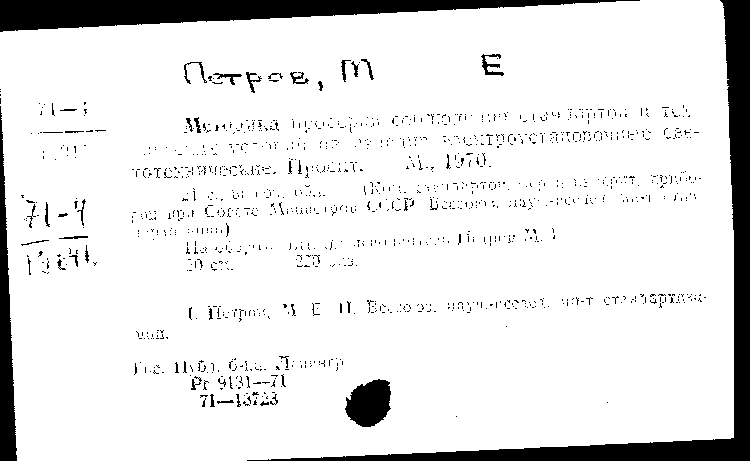 Петров, М Е
71—4
Методика проверки соблюдения стандартов и тех-
условий на изделия электроустановочные све-
тотехнические. Проект. М., 1970.
21 с. обл. (Ком. стандартов, мер и измерит. прибо-
ров при Совете Министров СССР. Всесоюз. науч.-исслед. ин-т стан-
71-4
На обороте тит. л. Петров М. Е.
20 см. 220 экз.
I. Петров, М. Е. II. Всесоюз. науч.-исслед. ин-т стандартиза-
ции.
Гос. Публ. б-ка. Ленингр.
Рг 9131—71
71—13723